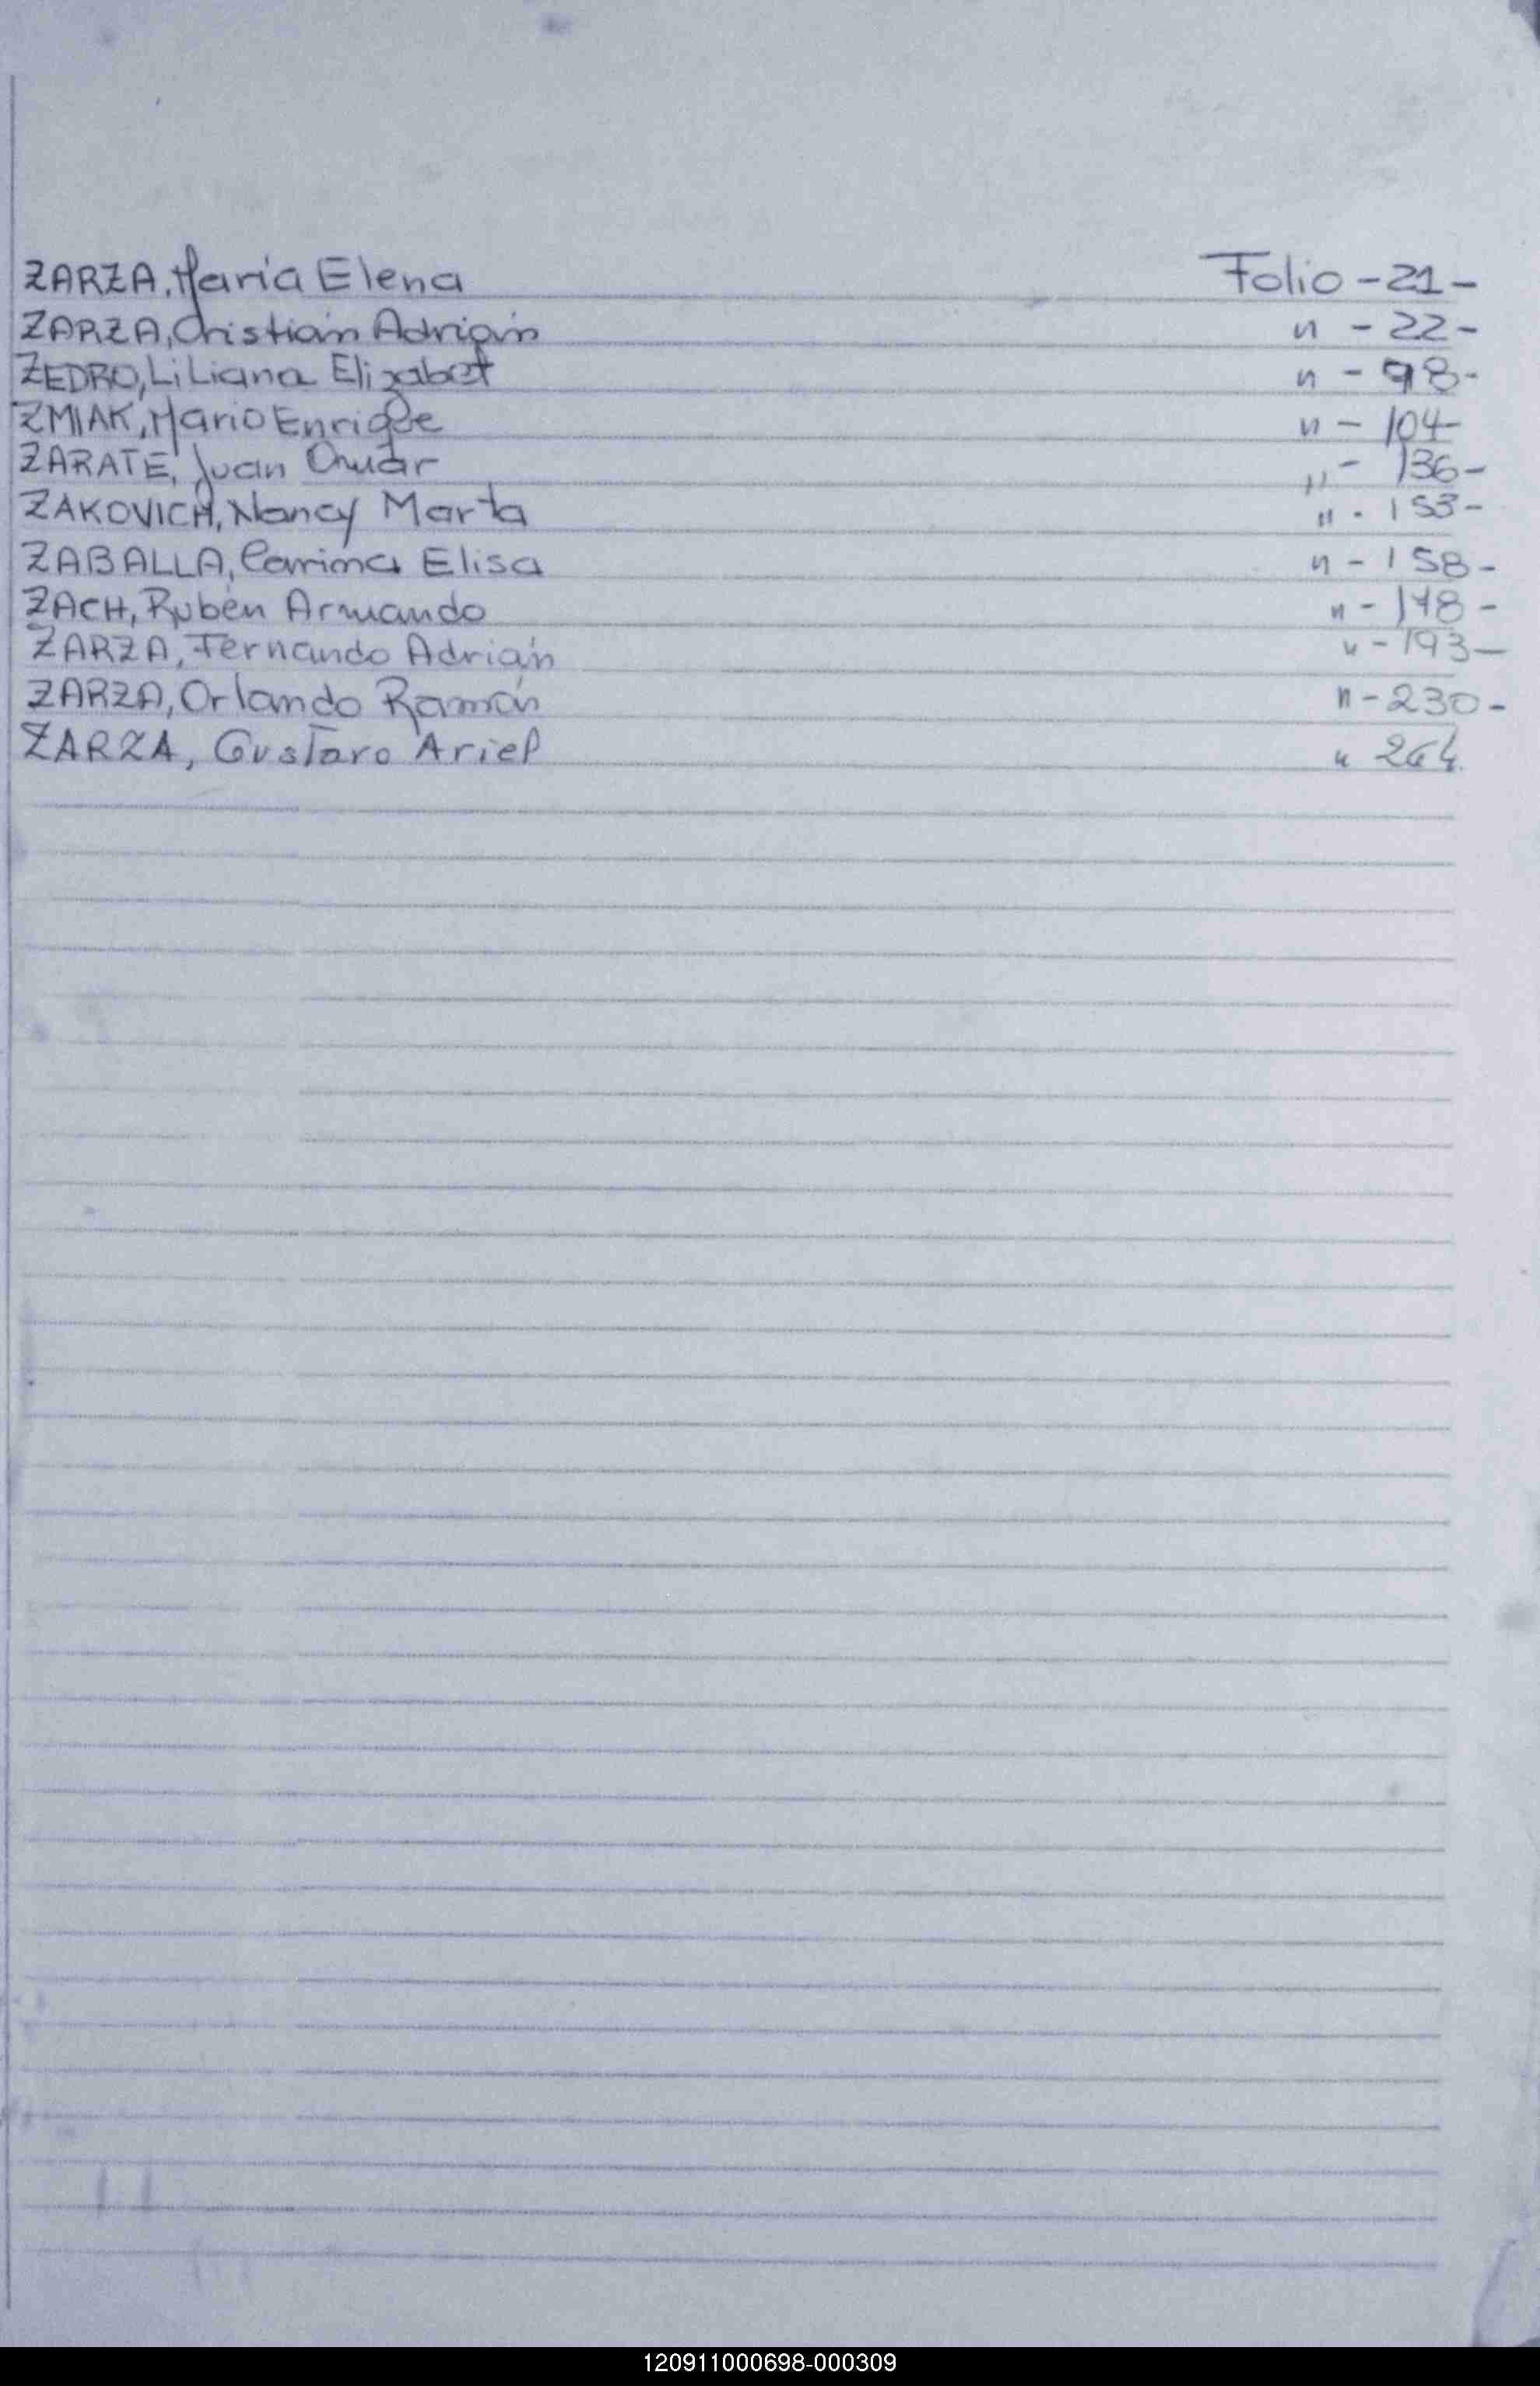 ZARZA, María Elena Folio - 21 -
ZARZA, Cristián Adrián " - 22 -
ZEDRO, LiLiana Elizabet " - 98 -
ZMIAK, Mario Enrique " - 104 -
ZARATE, Juan Omar " - 136 -
ZAKOVICH, Nancy Marta " - 153 -
ZABALLA, Carina Elisa " - 158 -
ZACH, Rubén Armando " - 178 -
ZARZA, Fernando Adrián " - 193 -
ZARZA, Orlando Ramón " - 230 -
ZARZA, Gustavo Ariel " 264.
120911000698-000309